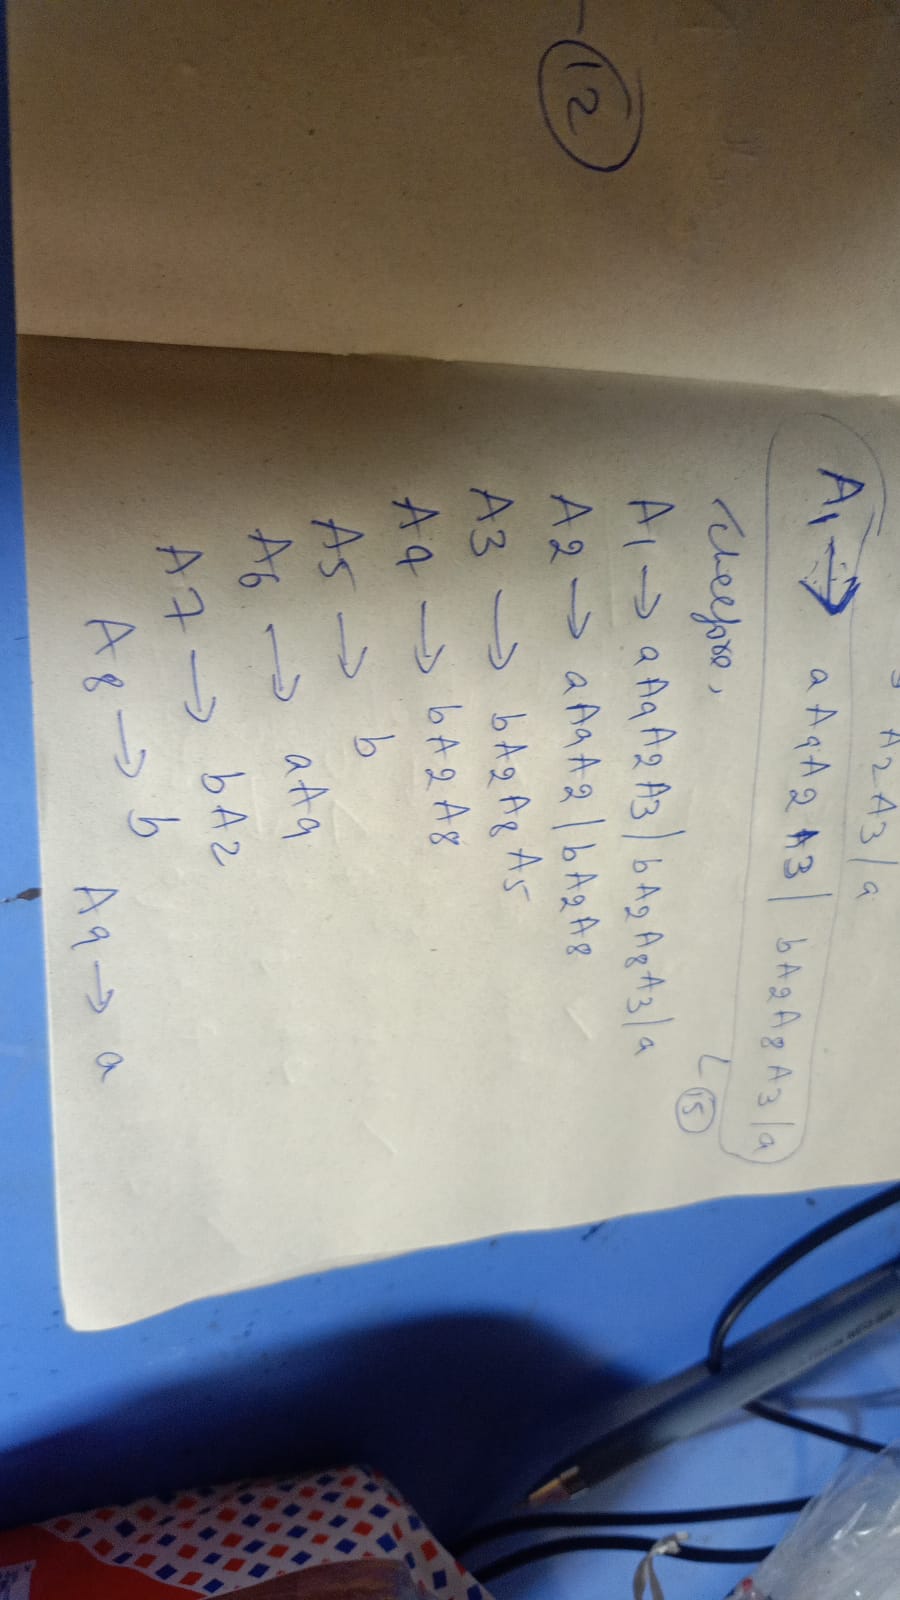 A2A3|a
A1 → aA9A2A3| bA2A8A3|a
15
Therefore,
A1 → aA9A2A3|bA2A8A3|a
12
A2 → aA9A2|bA2A8
A3 → bA2A8A5
A4 → bA2A8
A5 → b
A6 → aA9
A7 → bA2
A8 → b
A9 → a